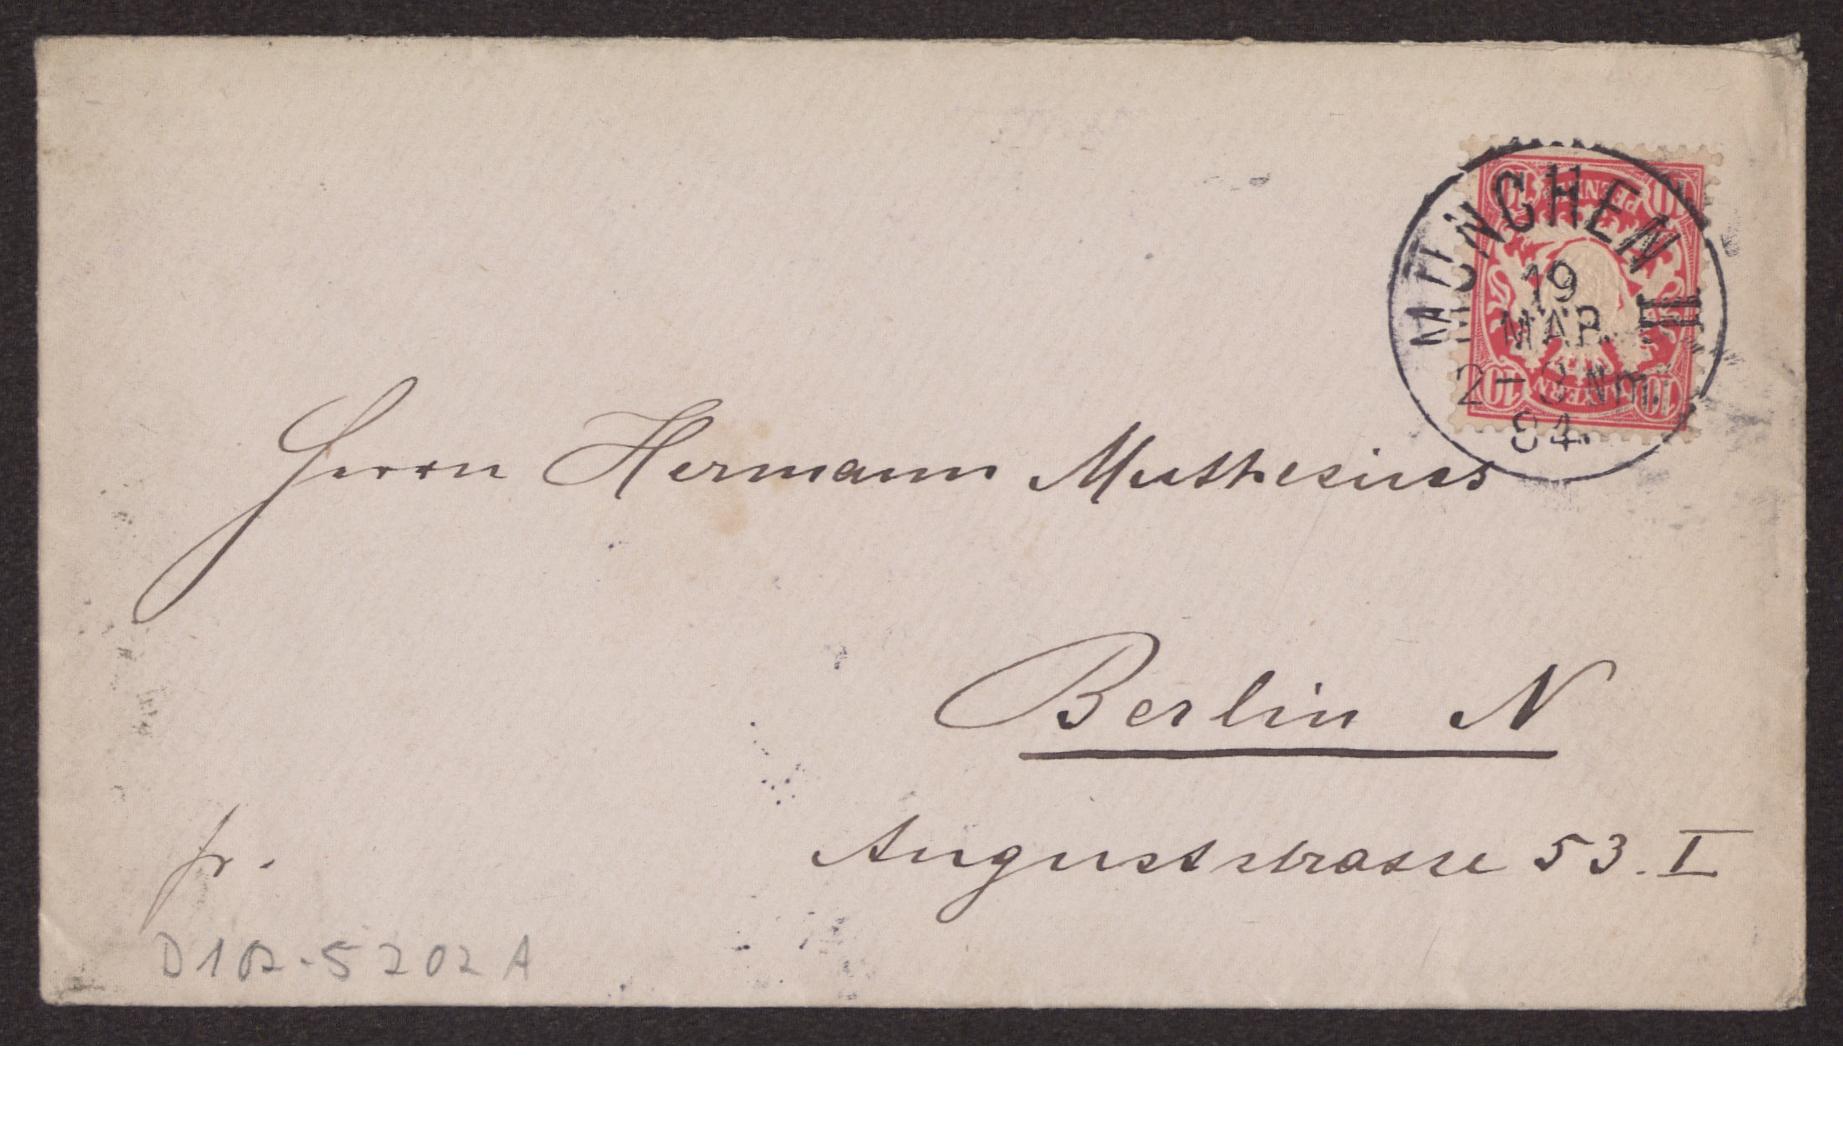 MÜNCHEN II
19
MAR.
2-3 Nm.
94.
10 PFENNIG 10
10 BAYERN 10
Herrn Hermann Muthesius
Berlin N
Auguststrasse 53. I
fr.
D102-5202A